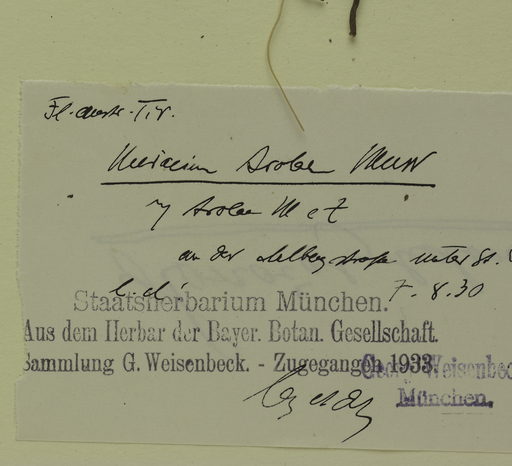 Fl. austr. Tir.
Hieracium Arolae Murr
γ) Arolae M et Z
an der Arlbergstrasse unter St.
7. 8. 30
Staatsherbarium München.
Aus dem Herbar der Bayer. Botan. Gesellschaft.
Sammlung G. Weisenbeck. - Zugegangen 1933.
Georg Weisenbeck
München.